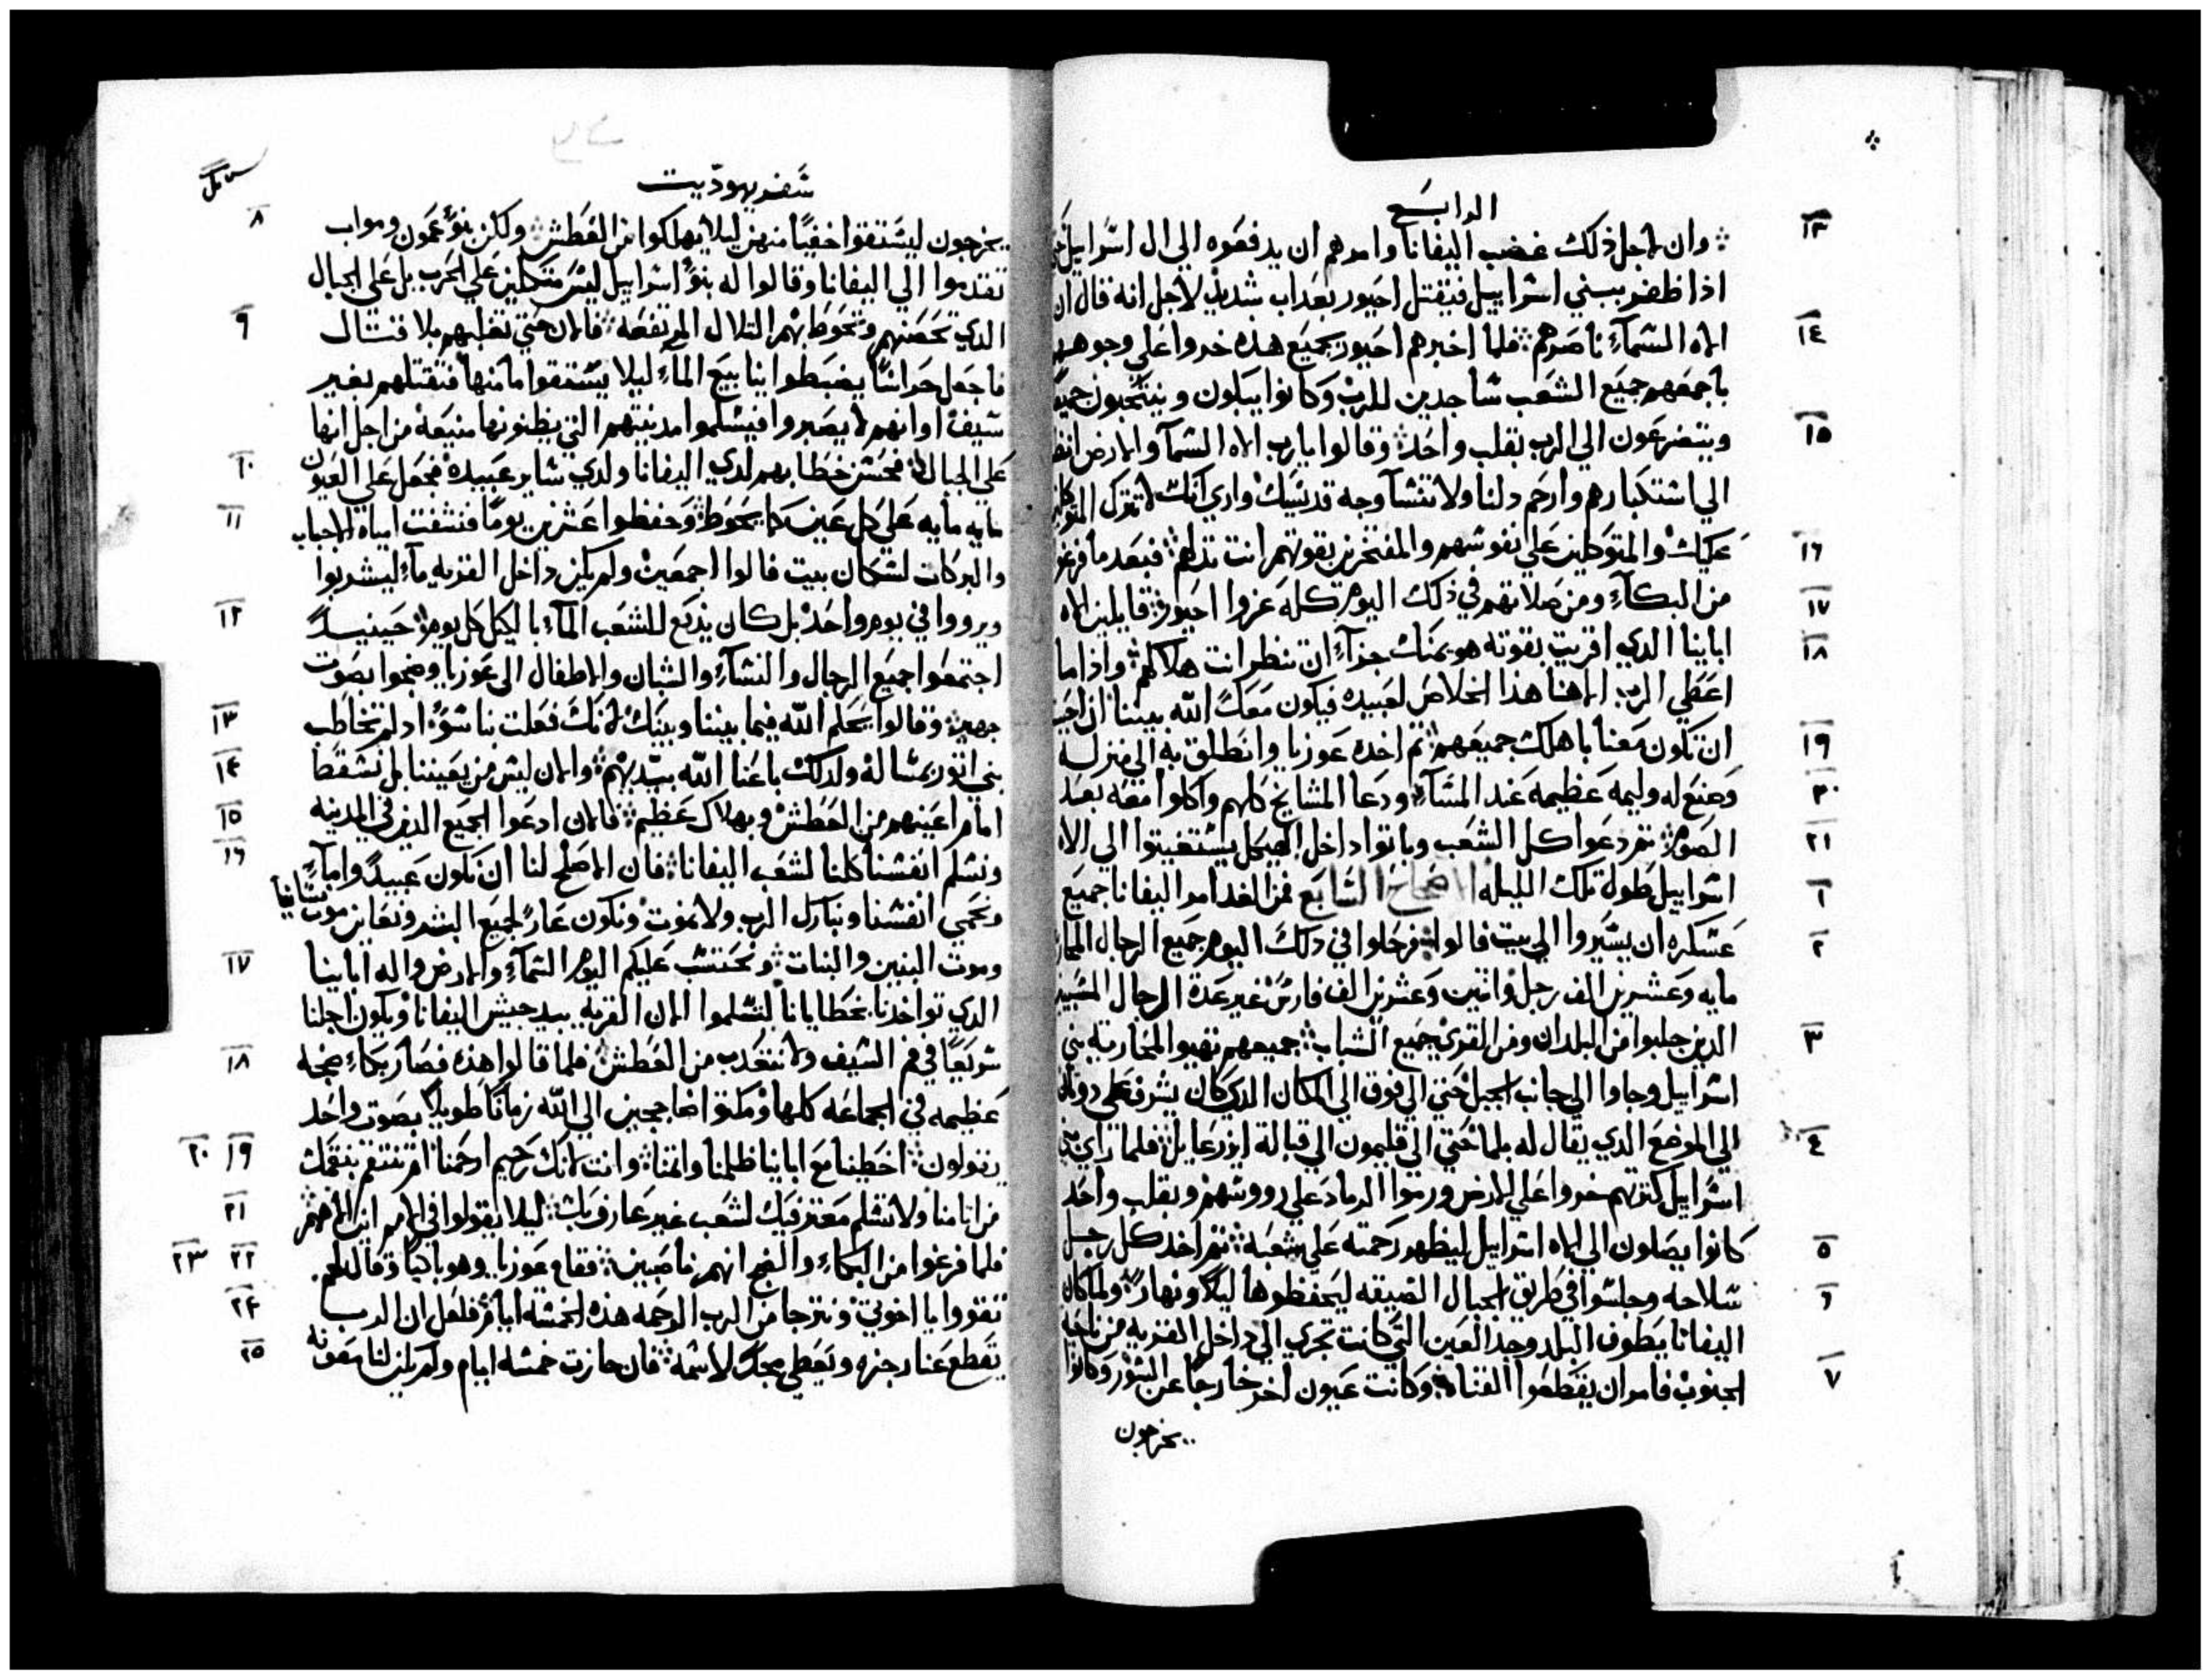 الرابع
١٣ وان لاجل ذلك غضب اليفانا وامرهم ان يدفعوه الي ال اسراييل
اذا ظفر ببني اسراييل فيقتل احيور بعداب شديد لاجل انه قال ان
١٤ الاه السماء ناصرهم فلما اخبرهم احيور بجميع هذه خروا علي وجوههم
باجمعهم جميع الشعب ساجدين للرب وكانوا يبكون وينتحبون
١٥ ويتضرعون الي الرب بقلب واحد وقالوا يا رب الاه السما والارض
الي استكبارهم وارحم دلنا ولا تنسا وجه قديسيك واري انك لا تترك
١٦ عليك والمتوكلين علي نفوسهم والمفتخرين بقوتهم انت تدلهم فبعد ما فرغوا
١٧ من البكاء ومن صلاتهم في ذلك اليوم كله عزوا احيور قايلين الاه
١٨ اباينا الدي اقريت بقوته هو يمنك جزاء ان تنظر انت هلاكهم واذا ما
اعطي الرب الاهنا هذا الخلاص لعبيده فيكون معك الله بيننا
١٩ ان تكون معنا باهلك جميعهم ثم اخده عوزيا وانطلق به الي منزله
٢٠ وصنع له وليمه عظيمه عند المساء ودعا المشايخ كلهم واكلوا معه بعد
٢١ الصوم ثم دعوا كل الشعب وباتوا داخل الهيكل يستغيتوا الي الاه
١ اسراييل طول تلك الليله الاصحاح السابع فمن الغد امر اليفانا جميع
٢ عسكره ان يسيروا الي بيت فالوا فرحلوا في ذلك اليوم جميع الرجال
مايه وعشرين الف رجل واتنين وعشرين الف فارس غير عدة الرجال
٣ الدين جلبوا من البلدان ومن القري جميع الشباب جميعهم تهيوا لمحاربة بني
اسراييل وجاوا الي جانب الجبل حتي الي فوق الي المكان الدي كان يشرف علي
٤ الي الموضع الدي يقال له بلما حتي الي قليمون الي قبالة ايزرعايل فلما راي بني
اسراييل كترتهم خروا علي الارض ورموا الرماد علي رووسهم وبقلب واحد
٥ كانوا يصلون الي الاه اسراييل ليظهر رحمته علي شعبه ثم اخد كل رجل
٦ سلاحه وجلسوا في طريق الجبال الضيقه ليحفظوها ليلا ونهارا ولما كان
اليفانا يطوف البلد وجد العين التي كانت تجري الي داخل القريه من ناحية
٧ الجنوب فامر ان يقطعوا القناه وكانت عيون اخر خارجا عن السور وكانوا
يخرجون
سفر يهوديت
٨ يخرجون ليستقوا خفيا منهن ليلا يهلكوا من العطش ولكن بنو عمون ومواب
تقدموا الي اليفانا وقالوا له بنو اسراييل ليس متكلين علي الحرب بل علي الجبال
٩ الدي تحصنهم وتحوط بهم التلال المرتفعه فالان حتي تغلبهم بلا قتال
فاجعل حراسا يضبطوا ينابيع الماء ليلا يستقوا ما منها فتقتلهم بغير
سيف او انهم لا يصبروا فيسلموا مدينتهم التي يظنونها منيعه من اجل انها
١٠ علي الجبال فحسن خطابهم لدي اليفانا ولدي ساير عبيده فجعل علي العيون
١١ مايه مايه علي كل عين كما يحوط وحفظوا عشرين يوما فنشفت امياه الاجباب
والبركات لسكان بيت فالوا اجمعين ولم يكن داخل القريه ماء ليشربوا
١٢ ويرووا في يوم واحد بل كان يدبع للشعب الماء بالكيل كل يوم حينيد
اجتمعوا جميع الرجال والنساء والشبان والاطفال الي عوزيا وضجوا بصوت
١٣ جهير وقالوا يحكم الله فيما بيننا وبينك لانك فعلت بنا سوا اد لم تخاطب
١٤ بني اتور بمسالة ولدلك باعنا الله بيديهم والان ليس من يعيننا بل نسقط
١٥ امام اعينهم من العطش وبهلاك عظيم فالان ادعوا لجميع الدين في المدينه
١٦ ونسلم انفسنا كلنا لشعب اليفانا فان الاصلح لنا ان نكون عبيدا واماء
ونحمي انفسنا ونبارك الرب ولا نموت ونكون عارا لجميع البشر ونعاين موت نسانيا
١٧ وموت البنين والبنات ونحتسب عليكم اليوم السماء والارض واله اباينا
الدي تواخدنا بخطايانا لتسلموا الان القريه بيد جيش اليفانا ويكون اجلنا
١٨ سريعا في فم السيف ولا نتعدب من العطش فلما قالوا هذه فصار بكاء وضجه
عظيمه في الجماعه كلها ومكتوا ضاججين الي الله زمانا طويلا بصوت واحد
١٩ ٢٠ يقولون اخطينا مع اباينا ظلمنا واتمنا وانت لانك رحيم ارحمنا او تنتقم بنقمتك
٢١ من اتامنا ولا تسلم معترفيك لشعب غير عارف بك ليلا يقولوا في الامم اين الاههم
٢٢ ٢٣ فلما فرغوا من البكاء والضجر انهم ناصبين فقام عوزيا وهو باكيا وقال لهم
٢٤ تقووا يا اخوتي ونترجا من الرب الرحمه هذه الخمسه ايام فلعل ان الرب
٢٥ يقطع عنا رجزه ويعطي مجدا لاسمه فان جازت خمسه ايام ولم يكن لنا معونه